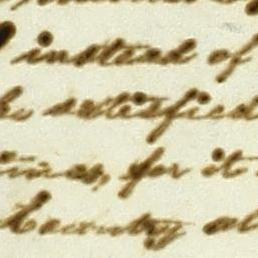 instead of
satisfied
for it
Country